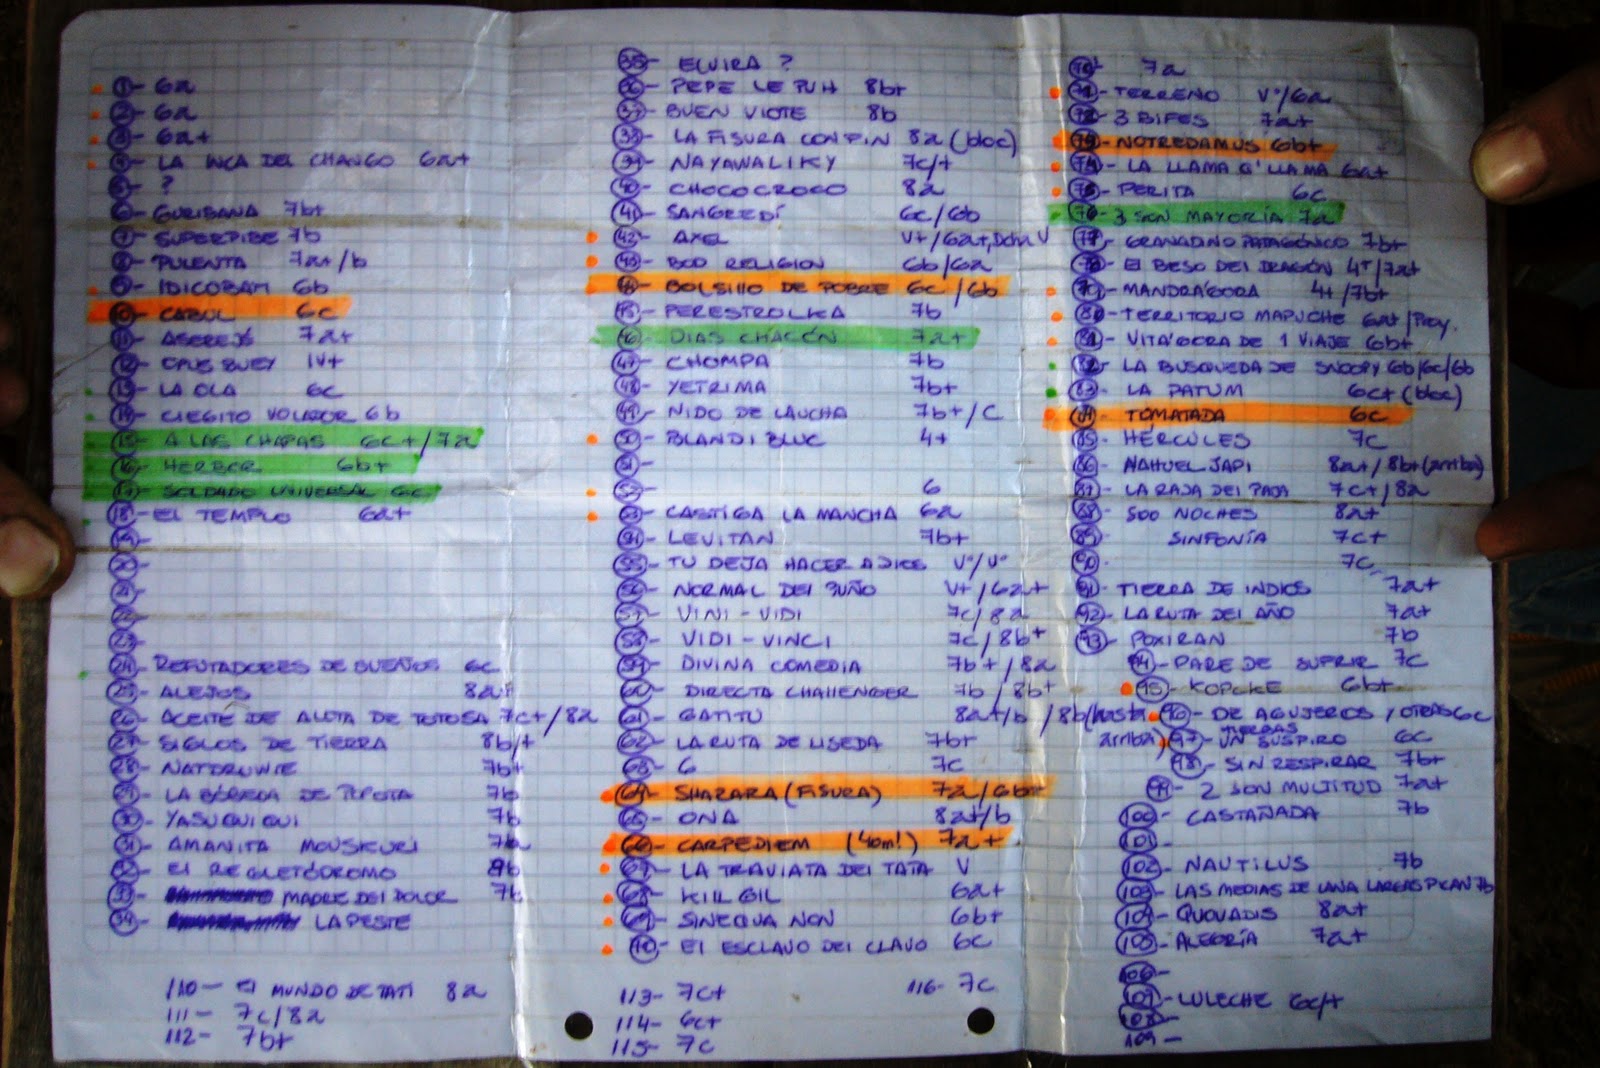 1- 6a
2- 6a
3- 6a+
4- LA INCA DEL CHANGO 6a+
5- ?
6- GURISANA 7b+
7- SUPERPIBE 7b
8- PULENTA 7a+/b
9- IDICOBAM 6b
10- CABUL 6c
11- ASEREJÉ 7a+
12- OPUS BUEY IV+
13- LA OLA 6c
14- CIEGITO VOLADOR 6b
15- A LAS CHAPAS 6c+/7a
16- HERBER 6b+
17- SOLDADO UNIVERSAL 6c
18- EL TEMPLO 6a+
19-
20-
21-
22-
23-
24- REFUTADORES DE SUEÑOS 6c
25- ALEJOS 8a+
26- ACEITE DE ALETA DE TOTOSA 7c+/8a
27- SIGLOS DE TIERRA 8b/+
28- 7b+
29- LA BÓBEDA DE 7b
30- YASUQUIQUI 7b
31- AMANITA MOUSKURI 7b
32- EL REGLETÓDROMO 8b
33- MADRE DEL DOLOR 7b
34- LA PESTE
110- El MUNDO DE TATI 8a
111- 7c/8a
112- 7b+
35- ELVIRA ?
36- PEPE LE PUH 8b+
37- BUEN VIOTE 8b
38- LA FISURA CON PIN 8a (bloc)
39- NAYAWALIKY 7c/+
40- CHOCOCROCO 8a
41- SANGREDÍ 6c/6b
42- AXEL V+/6a+, V
43- BOD RELIGION 6b/6a
44- BOLSILLO DE POBRE 6c/6b
45- PERESTROLKA 7b
46- DIAS CHACÓN 7a+
47- CHOMPA 7b
48- YETRIMA 7b+
49- NIDO DE LAUCHA 7b+/c
50- BLANDI BLUC 4+
51-
52- 6
53- CASTIGA LA MANCHA 6a
54- LEVITAN 7b+
55- TU DEJA HACER A DIOS V°/V°
56- NORMAL DEL PUÑO V+/6a+
57- VINI-VIDI 7c/8a
58- VIDI-VINCI 7c/8b+
59- DIVINA COMEDIA 7b+/8a
60- DIRECTA CHALLENGER 7b/8b+
61- GATITU 8a+/b /8b(hasta arriba)
62- LA RUTA DE LISEDA 7b+
63- G 7c
64- SHARARA (FISURA) 7a/6b+
65- ONA 8a+/b
66- CARPEDIEM (40m!) 7a+
67- LA TRAVIATA DEL TATA V
68- KILL GIL 6a+
69- SINEQUA NON 6b+
70- El ESCLAVO DEL CLAVO 6c
113- 7c+
114- 6c+
115- 7c
116- 7c
70' 7a
71- TERRENO V°/6a
72- 3 BIFES 7a+
73- NOTREDAMUS 6b+
74- LA LLAMA Q' LLAMA 6a+
75- PERITA 6c
76- 3 SON MAYORÍA 7a
77- GRANADINO PATAGÓNICO 7b+
78- El BESO DEL DRAGÓN 4+/7a+
79- MANDRÁGORA 4+/7b+
80- TERRITORIO MAPUCHE 6a+/Proy.
81- VITA'CORA DE 1 VIAJE 6b+
82- LA BUSQUEDA DE SNOOPY 6b/6c/6b
83- LA PATUM 6c+ (bloc)
84- TOMATADA 6c
85- HÉRCULES 7c
86- NAHUEL JAPI 8a+/8b+(arriba)
87- LA RAJA DEL PAJA 7c+/8a
88- 500 NOCHES 8a+
89- SINFONÍA 7c+
90- 7c
91- TIERRA DE INDIOS 7a+
92- LA RUTA DEL AÑO 7a+
93- POXIRAN 7b
94- PARE DE SUFRIR 7c
95- KOPCKE 6b+
96- DE AGUJEROS Y OTRAS HIERBAS 6c
97- UN SUSPIRO 6c
98- SIN RESPIRAR 7b+
99- 2 SON MULTITUD 7a+
100- CASTAÑADA 7b
101-
102- NAUTILUS 7b
103- LAS MEDIAS DE LANA LARGAS PICAN 7b
104- QUOVADIS 8a+
105- ALEGRÍA 7a+
106-
107- LULECHE 6c/+
108-
109-